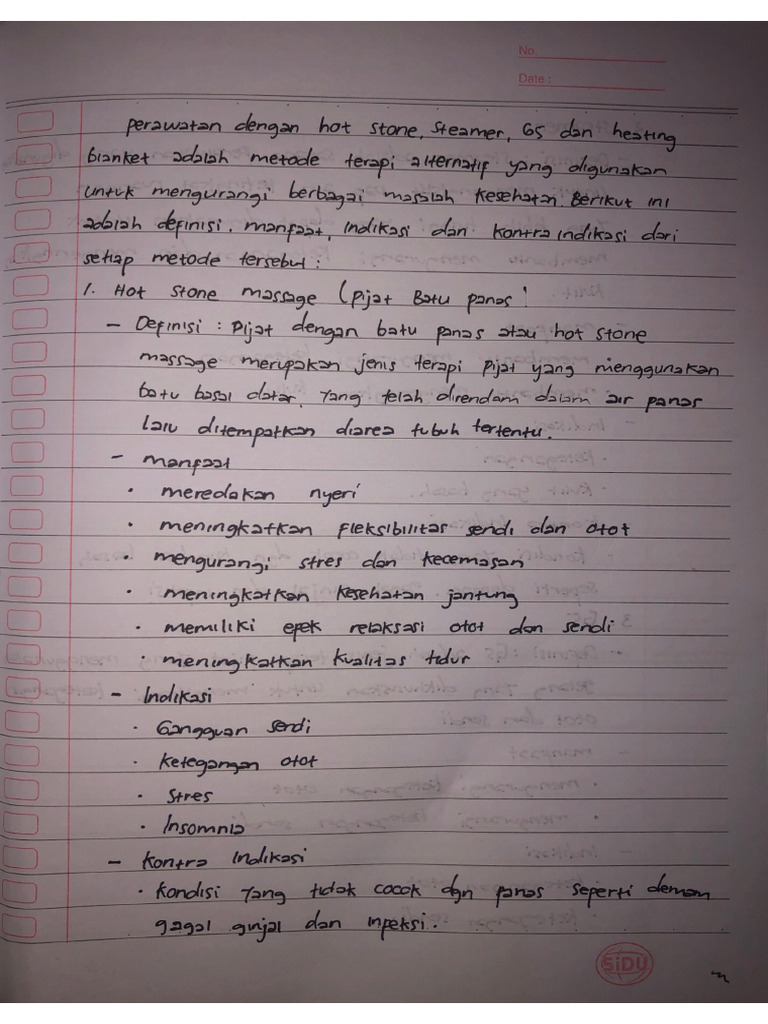 No.
Date :
perawatan dengan hot stone, steamer, G5 dan heating
blanket adalah metode terapi alternatif yang digunakan
untuk mengurangi berbagai masalah kesehatan. Berikut ini
adalah definisi, manfaat, indikasi dan kontra indikasi dari
setiap metode tersebut :
1. Hot stone massage (Pijat Batu panas)
- Definisi : Pijat dengan batu panas atau hot stone
massage merupakan jenis terapi pijat yang menggunakan
batu basal datar, yang telah direndam dalam air panas
lalu ditempatkan diarea tubuh tertentu.
- manfaat
• meredakan nyeri
• meningkatkan fleksibilitas sendi dan otot
• mengurangi stres dan kecemasan
• meningkatkan kesehatan jantung
• memiliki efek relaksasi otot dan sendi
• meningkatkan kualitas tidur
- Indikasi
• Gangguan sendi
• ketegangan otot
• stres
• Insomnia
- kontra indikasi
• kondisi yang tidak cocok dgn panas seperti demam
gagal ginjal dan infeksi.
SiDU